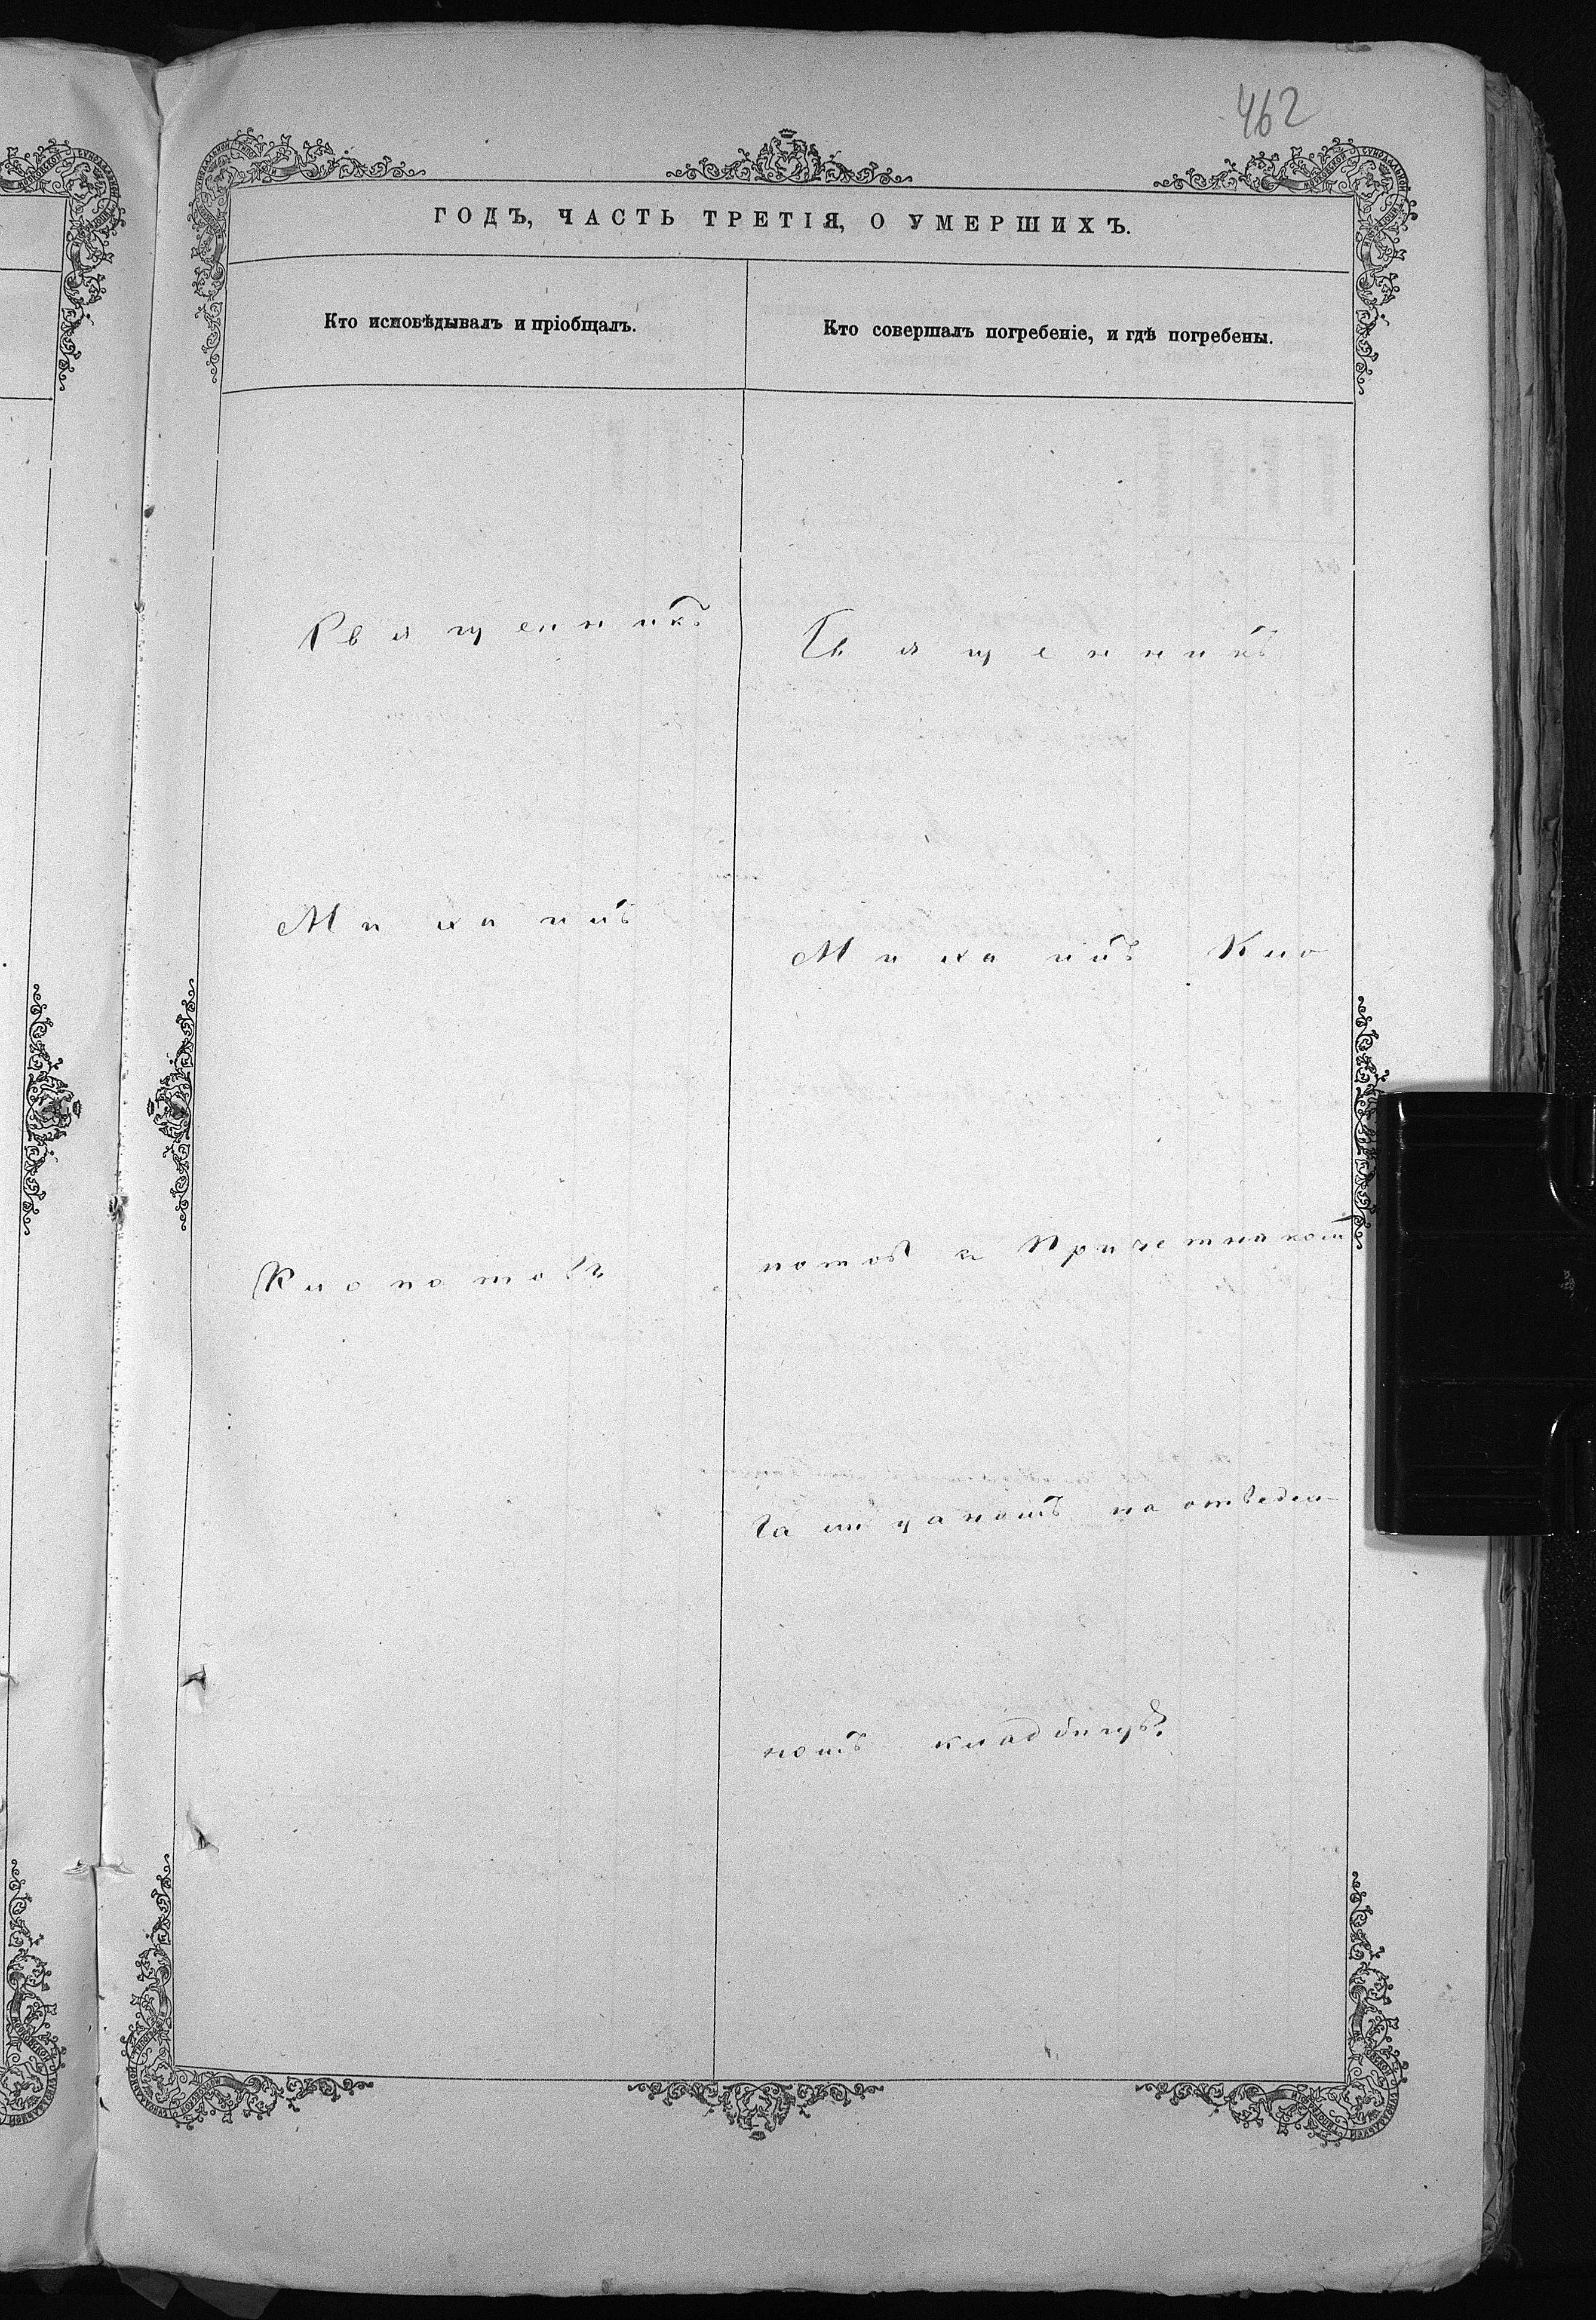 462
ГОДЪ, ЧАСТЬ ТРЕТІЯ, О УМЕРШИХЪ.
Кто исповѣдывалъ и пріобщалъ.
Кто совершалъ погребеніе, и гдѣ погребены.
Священникъ
Михаилъ
Клопотовъ
Священникъ
Михаилъ Кло
потовъ с Причетникомъ
на отведен
номъ кладбищѣ.